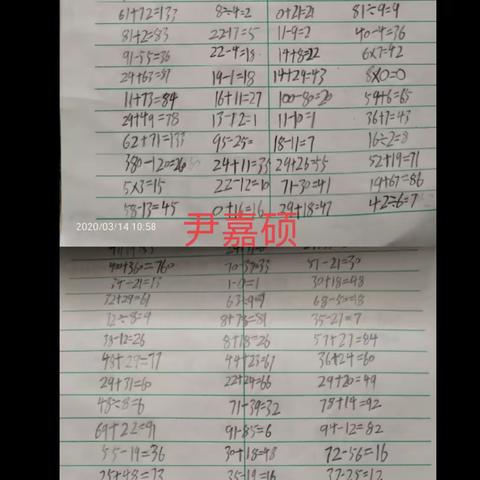 61+72=133 8÷4=2 0+21=21 81÷9=9
81+2=83 22-17=5 11-9=2 40-4=36
91-55=36 22-4=18 14+8=22 6×7=42
24+63=87 19-1=18 14+29=43 8×0=0
11+73=84 16+11=27 100-80=20 59+6=65
29+49=78 13-12=1 11-10=1 36+7=43
62+71=133 95-25= 18-11=7 16÷2=8
380-120=260 24+11=35 29+26=55 52+19=71
5×3=15 22-12=10 71-30=41 19+67=86
58-13=45 0+16=16 29+18=47 42÷6=7
2020/03/14 10:58
尹嘉硕
400+360=760 51-21=30
34-21=13 1-0=1 30+18=48
32+29=61 68-50=18
72÷8=9 8+73=81 35-21=7
38-12=26 8+18=26 57+27=84
48+29=77 44+23=67 36+24=60
29+31=60 22+24=66 29+20=49
48÷8=6 71-39=32 78+14=92
69+22=91 91-85=6 94-12=82
55-19=36 30+18=48 72-56=16
25+48=73 35-19=16 37-25=12